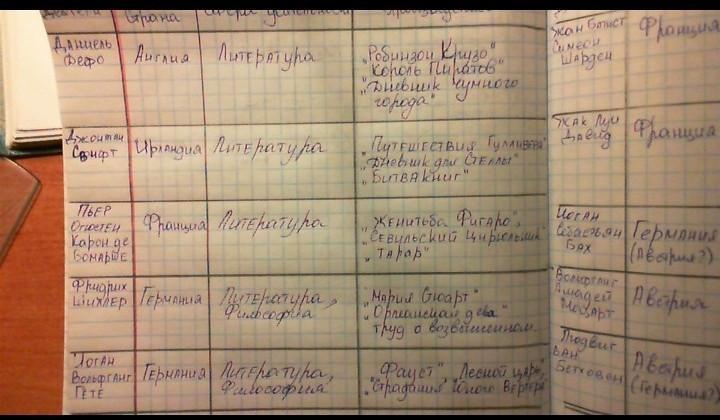 Страна
Даниель
Дефо
Англия
Литература
„Робинзон Крузо"
„Король Пиратов"
„Дневник чумного
города"
Джонатан
Свифт
Ирландия
Литература
„Путешествия Гулливера"
„Дневник для Стеллы"
„Битва книг"
Пьер
Огюстен
Карон де
Бомарше
Франция
Литература
„Женитьба Фигаро",
„Севильский цирюльник"
„Тарар"
Фридрих
Шиллер
Германия
Литература,
Философия
„Мария Стюарт"
„Орлеанская дева"
труд о возвышенном.
Иоган
Вольфганг
Гёте
Германия
Литература,
Философия
„Фауст", „Лесной царь",
„Страдания юного Вертера"
Жан Батист
Симеон
Шарден
Франция
Жак Луи
Давид
Франция
Иоган
Себастьян
Бах
Германия
(Австрия?)
Вольфганг
Амадей
Моцарт
Австрия
Людвиг
ван
Бетховен
Австрия
(Германия?)